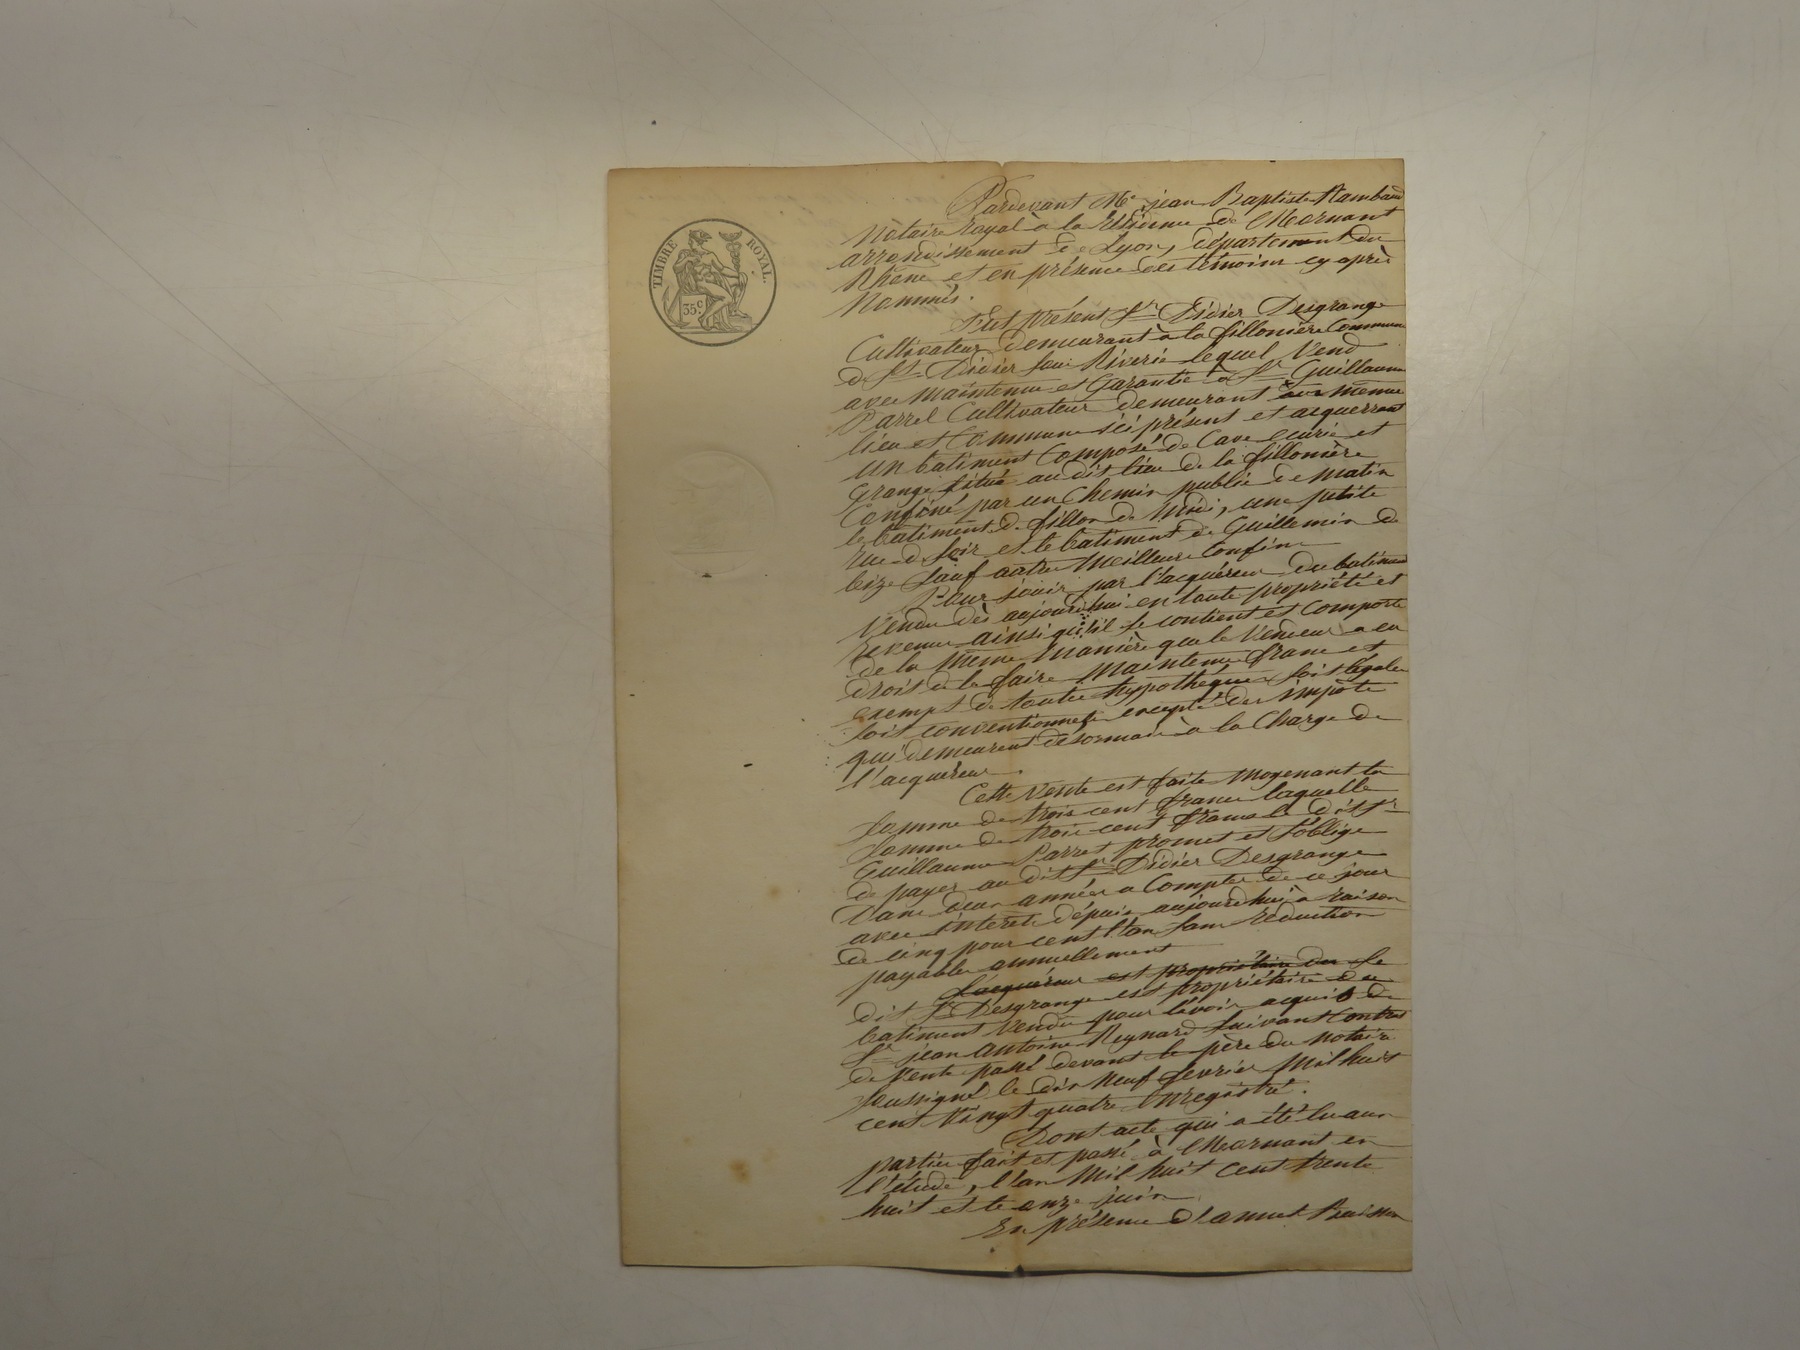 TIMBRE ROYAL.
35 c
Pardevant Me jean Baptiste Rambaud
Notaire Royal à la Résidence de Mornant
arrondissement de Lyon, département du
Rhône et en présence des témoins cy après
Nommés.
Fut présent Sr Didier Desgrange
Cultivateur demeurant à la fillonière Commune
de St Didier sous Riverie lequel Vend
avec Maintenue et Garantie à Sr Guillaume
Parret Cultivateur demeurant meme
lieu et Commune ici présent et acquerrant
un batiment Composé de Cave ecurie et
grange situé au dit lieu de la fillonière
Confiné par un Chemin public de matin
le batiment de fillon de Midi, une petite
rue de Soir et le batiment de Guillemin de
bize Sauf autre Meilleure Confins
Pour jouir par l'acquéreur du batiment
Vendu dès aujourdhui en toute propriété et
revenu ainsi qu'il se contient et comporte
de la Meme Manière que le Vendeur a eu
droit de le faire Maintenu franc et
exempt de toutes hypothéques soit légales
soit conventionnelle excepté des impots
qui demeurent désormais à la Charge de
l'acquéreur
Cette Vente est faite Moyenant la
Somme de trois cent francs laquelle
Somme de trois cent francs le dit Sr
Guillaume Parret promet et s'oblige
de payer au dit Sr Didier Desgrange
dans deux années a Compter de ce jour
avec interets dépuis aujourdhui à raison
de cinq pour cent l'an sans réduction
payable annuellement
L'acquéreur est propriétaire du Le
dit Sr Desgrange est propriétaire du
batiment Vendu pour l'avoir acquis de
Sr jean Antoine Reynard suivant Contrat
de Vente passé devant le père du notaire
soussigné le dix Neuf fevrier Mil huit
cent Vingt quatre Enregistré.
Dont acte qui a été lu aux
parties fait et passé à Mornant en
l'étude, l'an Mil huit cent trente
huit et le onze juin
En présence d'